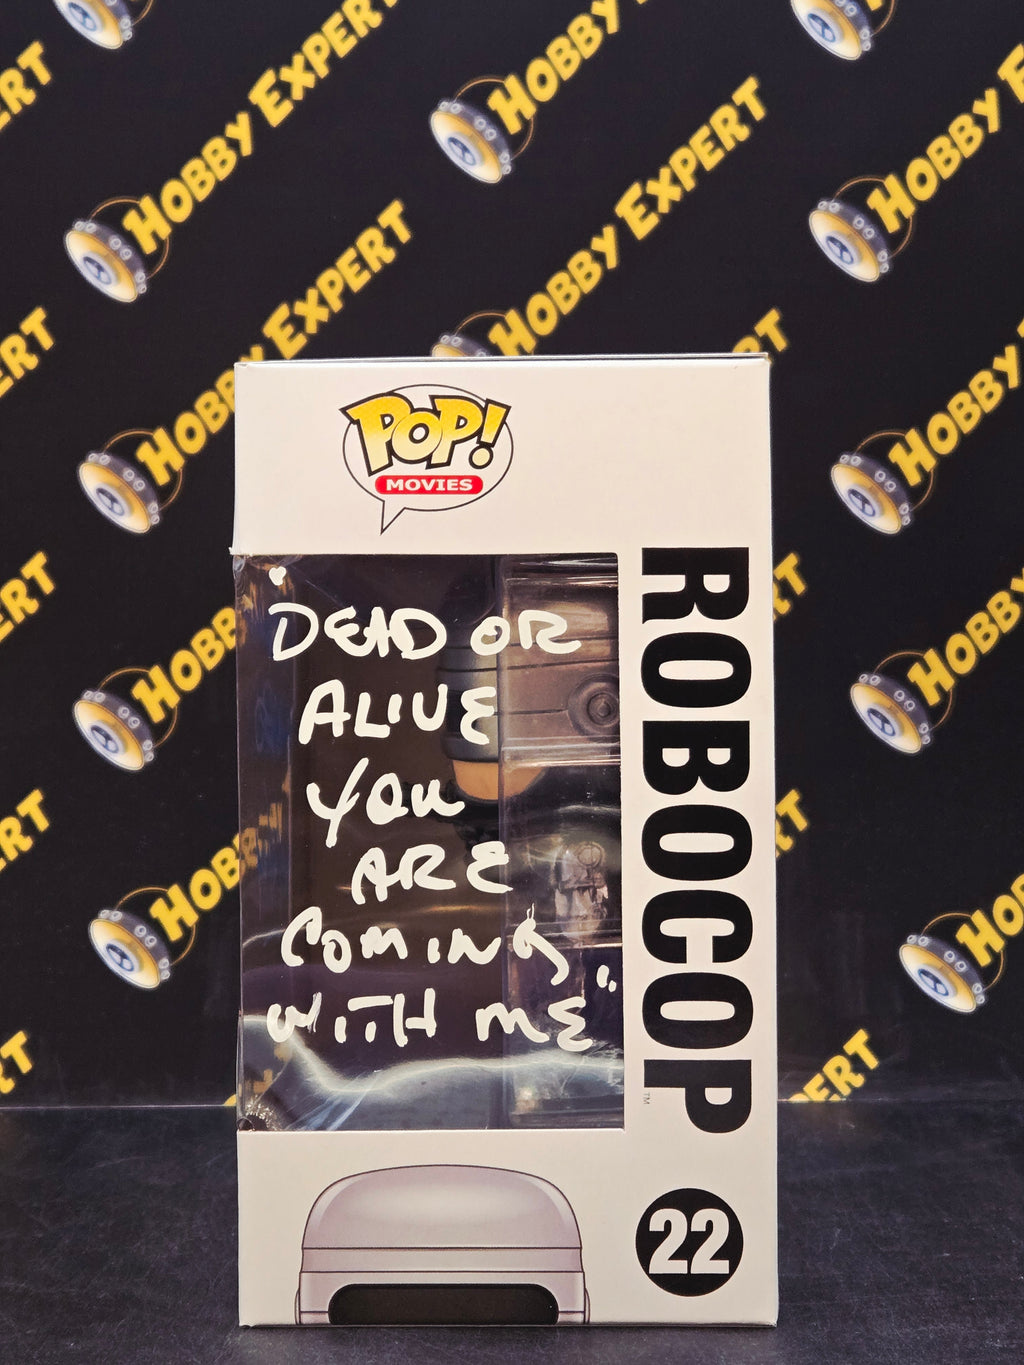 HOBBY EXPERT
HOBBY EXPERT
HOBBY EXPERT
HOBBY EXPERT
HOBBY EXPERT
HOBBY EXPERT
POP!
MOVIES
"DEAD OR
ALIVE
YOU
ARE
COMING
WITH ME"
ROBOCOP
TM
22